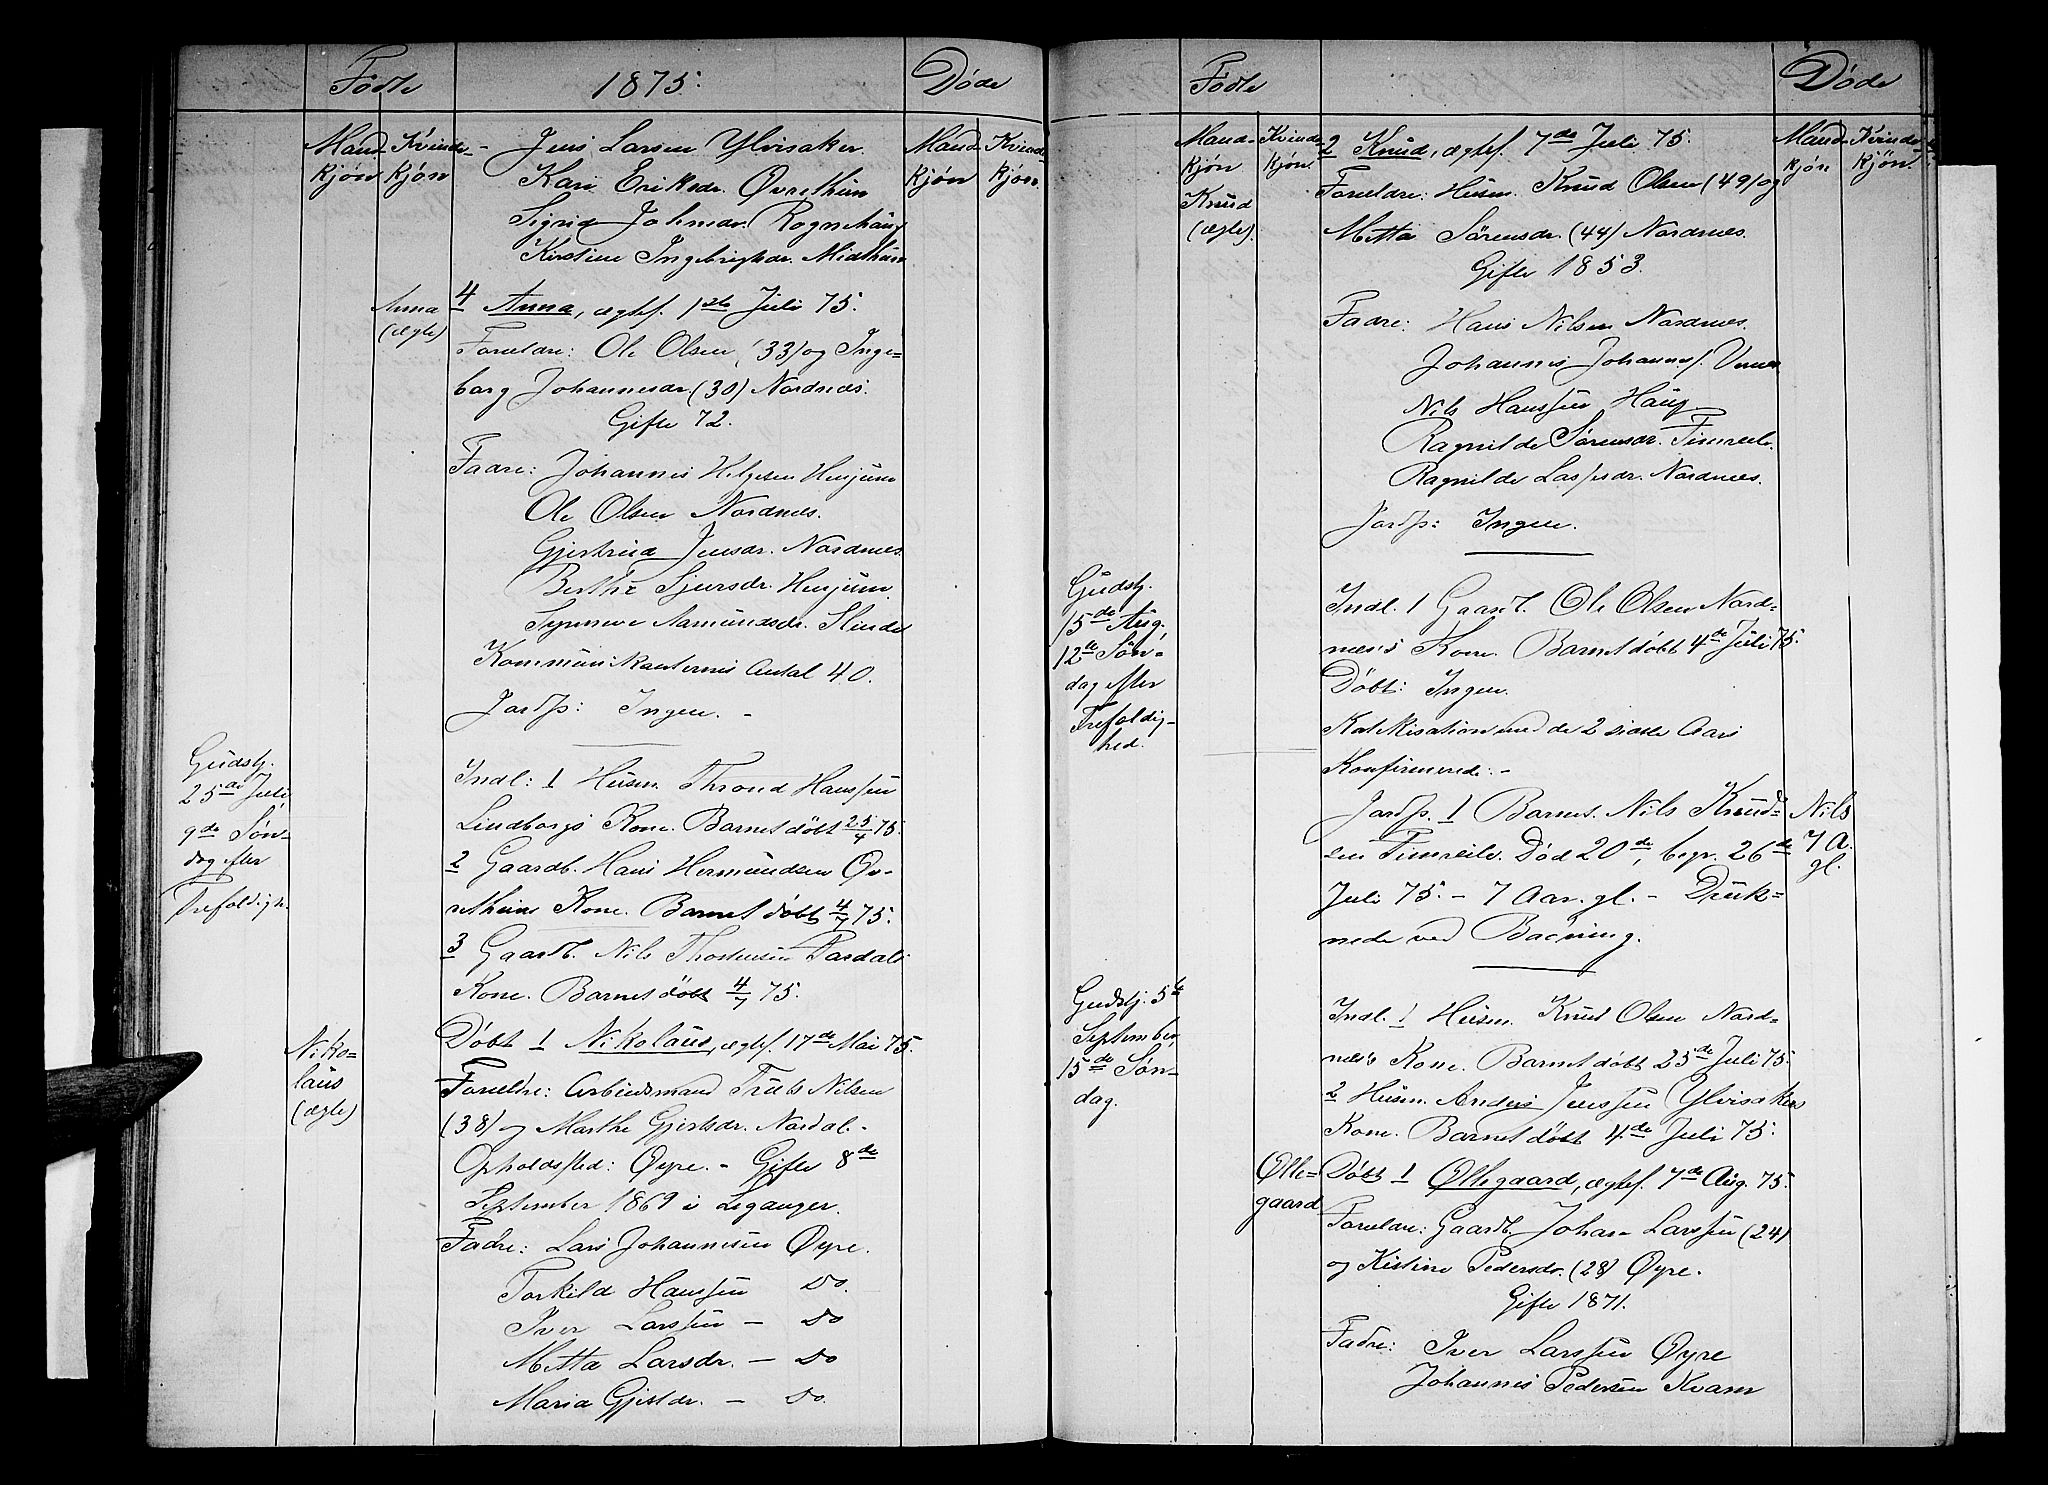 Fødte 1875. Døde
Mand- Kvinde- Mand- Kvinde-
kjøn kjøn kjøn kjøn.
Jens Larsen Ylvisaker.
Kari Eriksdr. Øvrethun
Sigrid Johnsdr. Rognehaug
Kirstine Ingebrigtsdr. Midthun
Anna
(ægte)
4 Anna, ægtef. 1ste Juli 75.
Foreldre: Ole Olsen, (33) og Inge-
borg Johannesdr (30) Nordnæs.
Gifte 72.
Fadre: Johannes Helgesen Husjum
Ole Olsen Nordnæs.
Gjertrud Jensdr. Nordnæs.
Berthe Sjursdr. Husjum.
Synneve Aamundsdr. Slinde
Kommunikanternes Antal 40.
Jordf: Ingen. -
Gudstj.
25de Juli
9de Søn-
dag efter
Trefoldigh.
Indl: 1 Husm. Thrond Hanssen
Lindborgs Kone. Barnet døbt 25/4 75.
2 Gaardb. Hans Hermundsen Øv-
rethuns Kone. Barnet døbt 4/7 75.
3 Gaardb. Nils Thorstensen Fardals
Kone. Barnet døbt 4/7 75.
Niko-
laus
(ægte)
Døbt 1 Nikolaus, ægtef. 17de Mai 75.
Foreldre: Arbeidsmand Truls Nilsen
(38) og Marthe Gjertsdr. Nordal. -
Opholdssted: Øyre. - Gifte 8de
September 1869 i Leganger.
Fadre: Lars Johannesen Øyre.
Torkild Hanssen do.
Iver Larssen - do
Metta Larsdr. - do
Maria Gjertsdr. - do.
Fødte Døde
Mand- Kvinde- Mand- Kvinde-
kjøn kjøn. kjøn kjøn.
Knud
(ægte).
2 Knud, ægtef. 7de Juli 75.
Foreldre: Husm. Knud Olsen (49) og
Metta Sörensdr. (44) Nordnæs.
Gifte 1853.
Fadre: Hans Nilsen Nordnæs.
Johannes Johannes.
Nils Hanssen Haug
Ragnilde Sørensdr. Timreite.
Ragnilde Lassesdr. Nordnæs.
Jordf: Ingen.
Gudstj.
15de Aug.
12te Søn-
dag efter
Trefoldig-
hed.
Indl. 1 Gaardb. Ole Olsen Nord-
næs's Kone. Barnet døbt 4de Juli 75.
Døbt: Ingen.
Katekisation med de 2 sidste Aars
Konfirmerede. -
Jordf. 1 Barnet Nils Knud-
sen Timreite. Død 20de, begr. 26de
Juli 75. - 7 Aar. gl. - Druk-
nede ved Badning.
Nils
7 A.
gl.
Gudstj. 5te
September,
15de Søn-
dag.
Indl. 1 Husm. Knud Olsen Nord-
næs's Kone. Barnet døbt 25de Juli 75.
2 Husm. Anders Jenssen Ylvisakers
Kone. Barnet døbt 4de Juli 75.
Ølle-
gaard
Døbt 1 Øllegaard, ægtef. 7de Aug. 75.
Foreldre: Gaardb. Johan Larssen (24)
og Kistine Pedersdr. (28) Øyre.
Gifte 1871.
Fadre: Iver Larssen Øyre
Johannes Pedersen Kvam